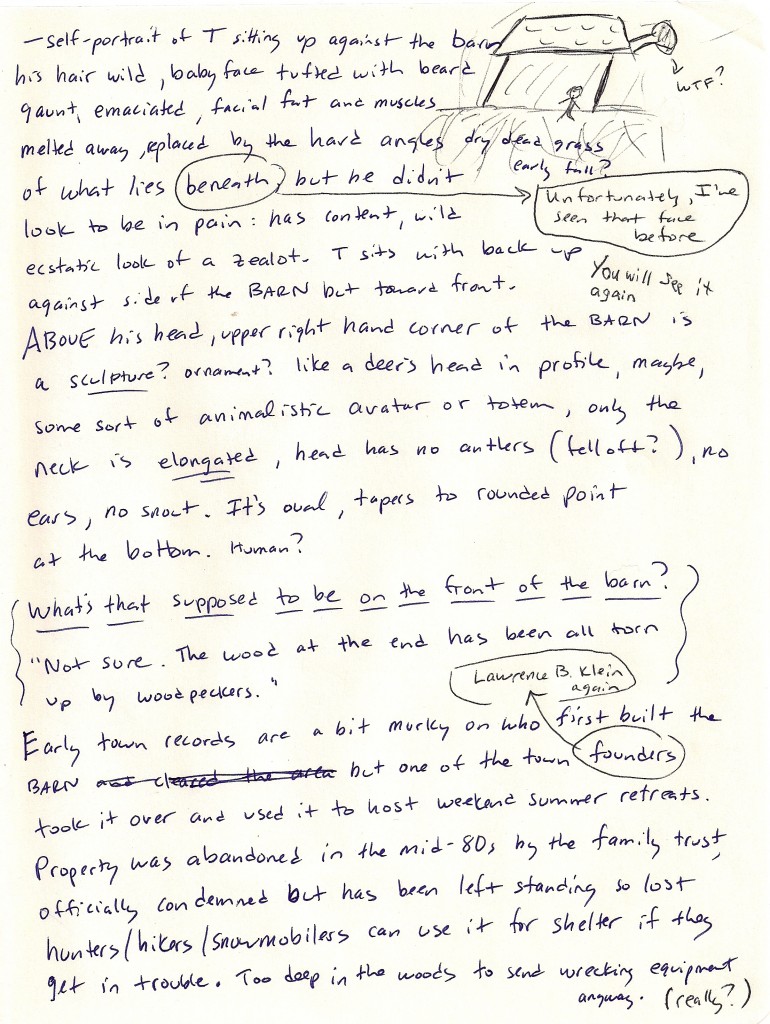 —self-portrait of T sitting up against the barn
his hair wild, baby face tufted with beard
WTF?
gaunt, emaciated, facial fat and muscles
melted away, replaced by the hard angles
dry dead grass
early fall?
of what lies beneath, but he didn't
Unfortunately, I've
seen that face
before
look to be in pain: has content, wild
ecstatic look of a zealot. T sits with back up
You will see it
again
against side of the BARN but toward front.
ABOVE his head, upper right hand corner of the BARN is
a sculpture? ornament? like a deer's head in profile, maybe,
some sort of animalistic avatar or totem, only the
neck is elongated, head has no antlers (fell off?), no
ears, no snout. It's oval, tapers to rounded point
at the bottom. Human?
What's that supposed to be on the front of the barn?
"Not sure. The wood at the end has been all torn
up by woodpeckers."
Lawrence B. Klein
again
Early town records are a bit murky on who first built the
BARN and cleared the area but one of the town founders
took it over and used it to host weekend summer retreats.
Property was abandoned in the mid-80s by the family trust,
officially condemned but has been left standing so lost
hunters/hikers/snowmobilers can use it for shelter if they
get in trouble. Too deep in the woods to send wrecking equipment
anyway. (really?)